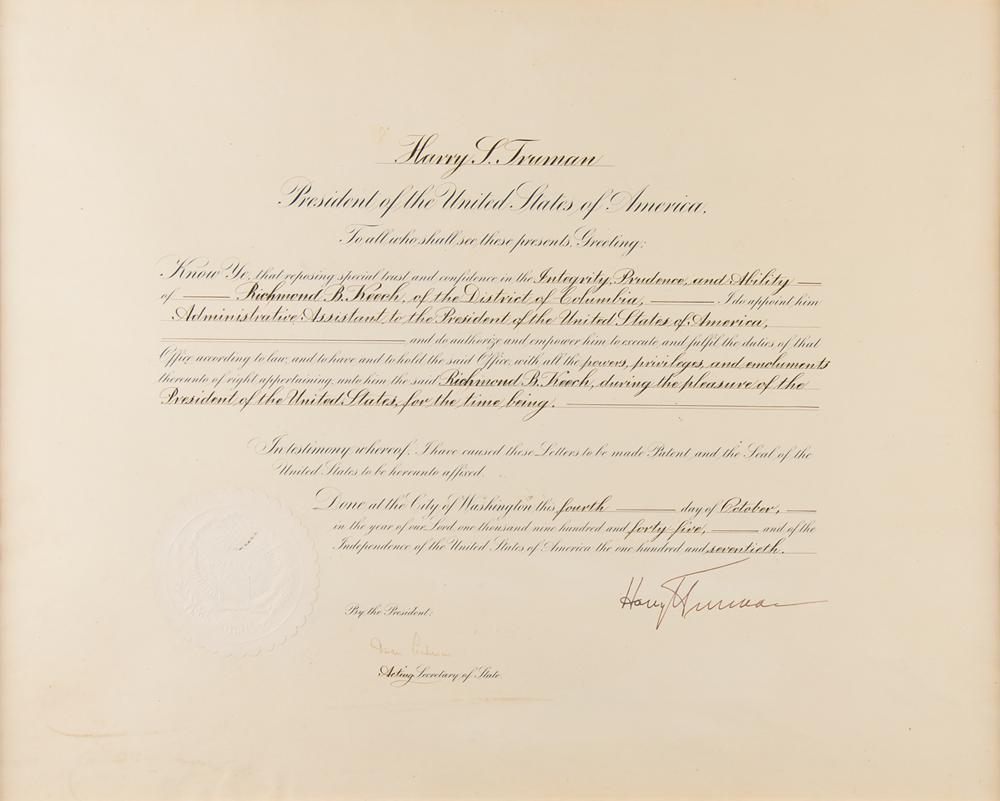 Harry S. Truman
President of the United States of America.
To all who shall see these presents, Greeting:
Know Ye, that reposing special trust and confidence in the Integrity, Prudence, and Ability
of Richmond B. Keech, of the District of Columbia, I do appoint him
Administrative Assistant to the President of the United States of America,
and do authorize and empower him to execute and fulfil the duties of that
Office according to law, and to have and to hold the said Office, with all the powers, privileges, and emoluments
thereunto of right appertaining, unto him the said Richmond B. Keech, during the pleasure of the
President of the United States, for the time being.
In testimony whereof, I have caused these Letters to be made Patent, and the Seal of the
United States to be hereunto affixed.
Done at the City of Washington this fourth day of October,
in the year of our Lord one thousand nine hundred and forty five, and of the
Independence of the United States of America the one hundred and seventieth.
Harry S Truman
By the President:
Dean Acheson
Acting Secretary of State.